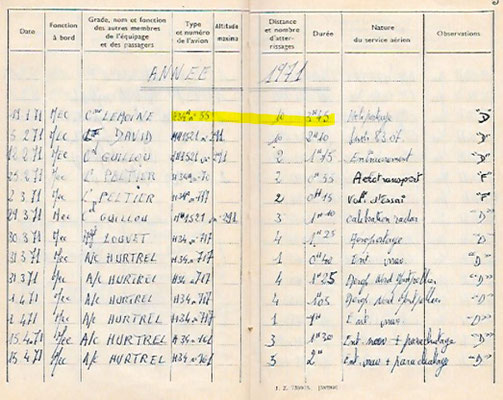 Date Fonction à bord Grade, nom et fonction des autres membres de l'équipage et des passagers Type et numéro de l'avion Altitude maxima Distance et nombre d'atterrissages Durée Nature du service aérien Observations
ANNEE 1971
19.1.71 Mec LEMOINE H34 n° 55 10 Héliportage "D"
5.2.71 Mec DAVID 291 10 2H10 "D"
12.2.71 Mec GUILLOU 291 2 1H15 Entrainement "D"
25.2.71 Mec PELTIER 2 0H55 Aérotransport
2.3.71 Mec PELTIER H34 n° 717 2 0H15 Vol d'essai
29.3.71 Mec GUILLOU 291 3 calibration radar "D"
30.3.71 Mec LOUVET H34 n° 717 4 1H25 "D"
31.3.71 Mec A/c HURTREL H34 n° 717 1 0H40 Ent. "D"
31.3.71 Mec A/c HURTREL H34 n° 717 4 1H25 "D"
1.4.71 Mec A/c HURTREL H34 n° 717 4 1H05 "D"
2.4.71 Mec A/c HURTREL H34 n° 717 1 1H Ent. "D"
15.4.71 Mec A/c HURTREL H34 n° 161 3 1H30 Ent. + parachutage "D"
15.4.71 Mec A/c HURTREL H34 n° 161 5 2H Ent. + parachutage "D"